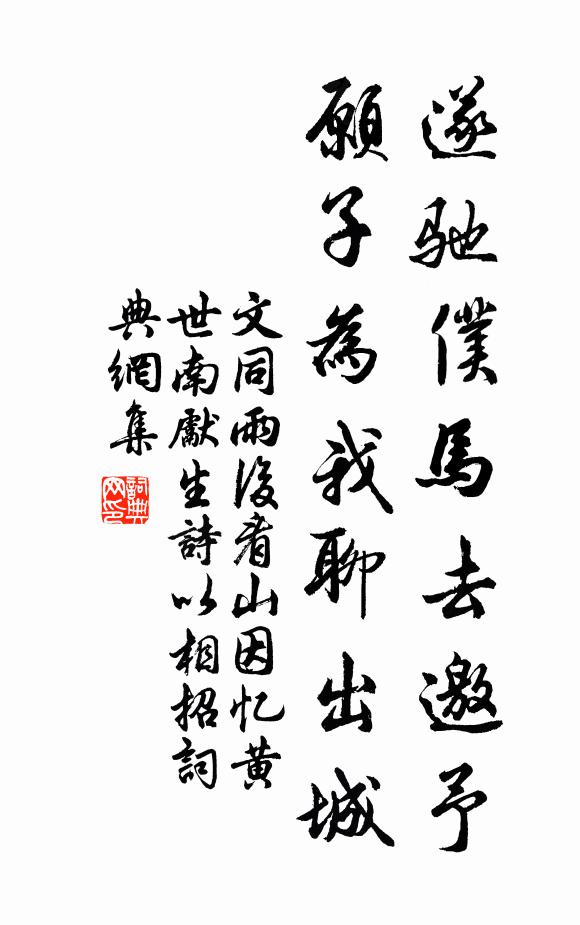 遂馳僕馬去邀予
願子為我聊出城
文同雨後看山因忆黄
世南獻生詩以相招詞
典網集
詞典网印